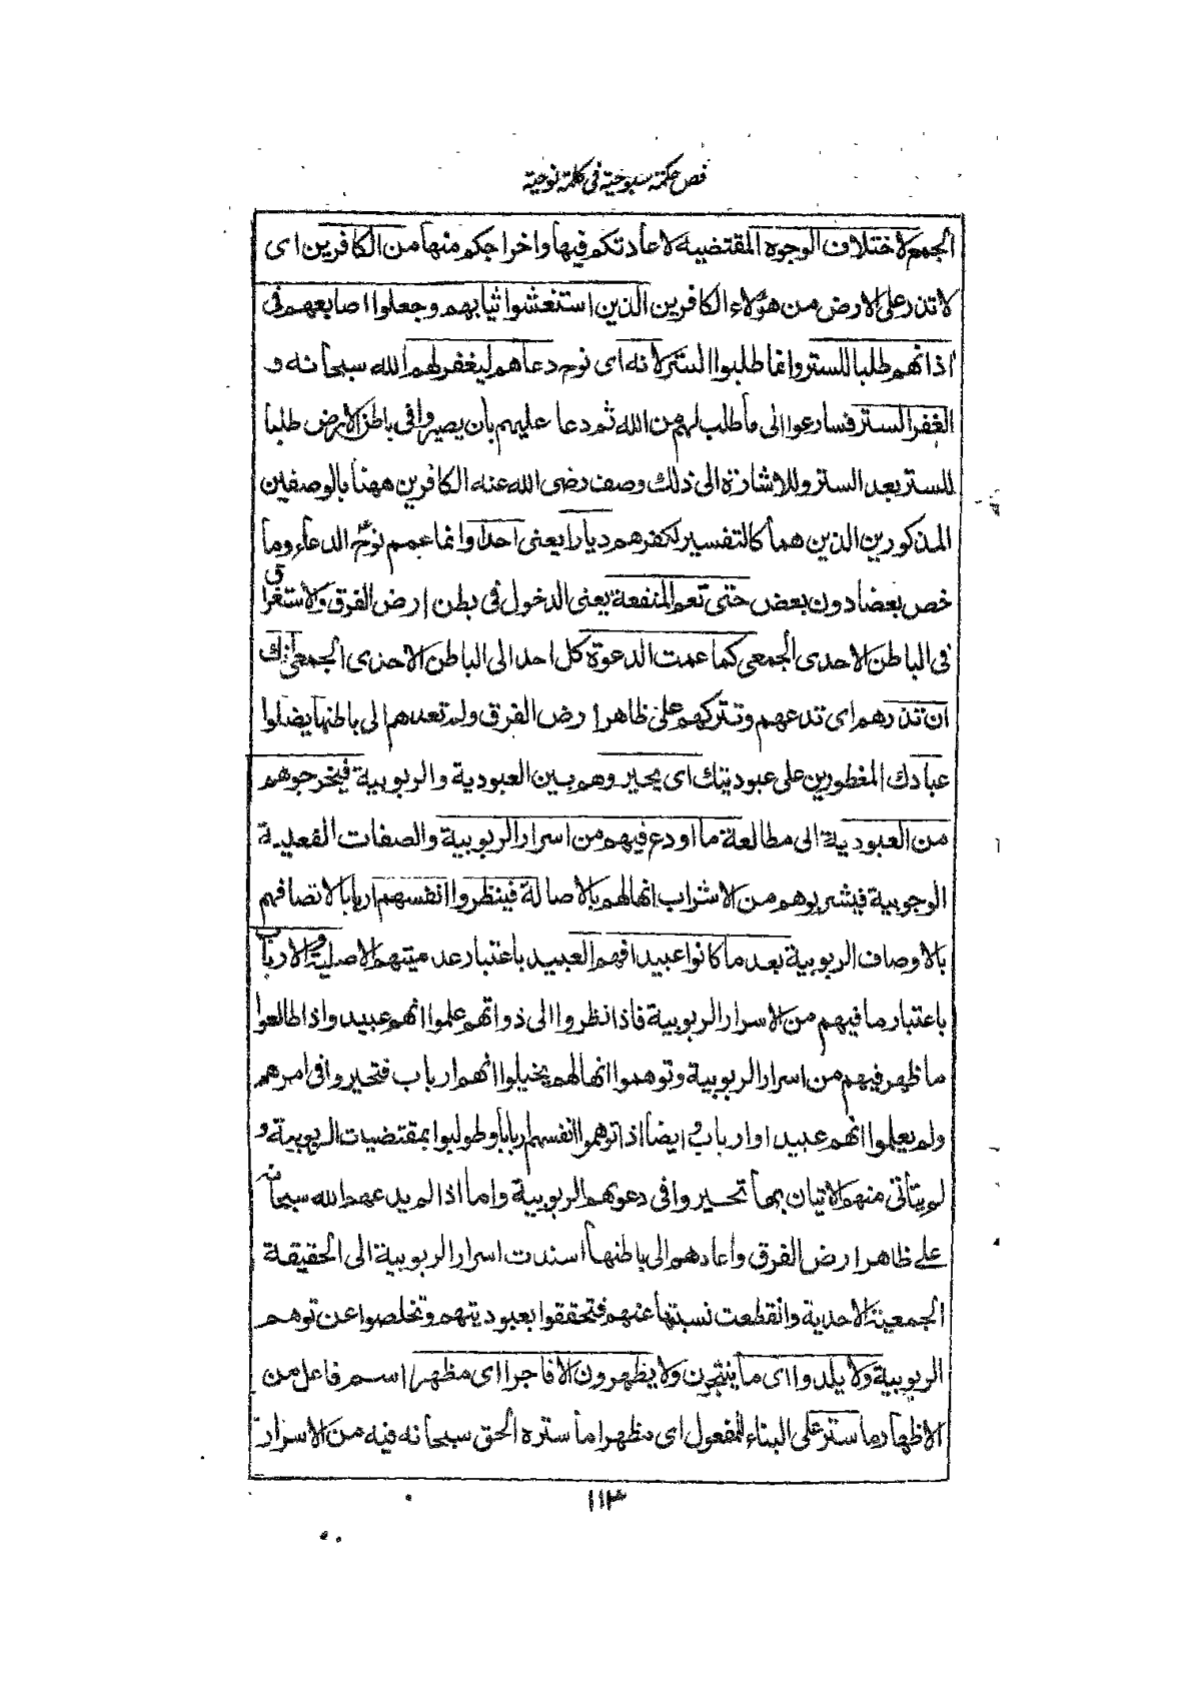 فص حكمة سبوحية فى كلمة نوحية
الجمع لاختلاف الوجوه المقتضية لاعادتكم فيها واخراجكم منها من الكافرين اى
لا تذر على الارض من هؤلاء الكافرين الذين استغشوا ثيابهم وجعلوا اصابعهم فى
اذانهم طلبا للستر وانما طلبوا الستر لانه اى نوح دعاهم ليغفر لهم الله سبحانه و
الغفر الستر فسارعوا الى ما طلب لهم من الله ثم دعا عليهم بان يصيروا فى باطن الارض طلبا
للستر بعد الستر وللاشارة الى ذلك وصف رضى الله عنه الكافرين ههنا بالوصفين
المذكورين الذين هما كالتفسير لكفرهم ديارا يعنى احدا وانما عمم نوح الدعاء وما
خص بعضا دون بعض حتى تعم المنفعة يعنى الدخول فى بطن ارض الفرق والاستغراق
فى الباطن الاحدى الجمعى كما عمت الدعوة كل احد الى الباطن الاحدى الجمعى انك
ان تذرهم اى تدعهم وتتركهم على ظاهر ارض الفرق ولم تعدهم الى باطنها يضلوا
عبادك المفطورين على عبوديتك اى يحيروهم بين العبودية والربوبية فيخرجوهم
من العبودية الى مطالعة ما اودع فيهم من اسرار الربوبية والصفات الفعلية
الوجوبية فيشربوهم من الاشراب انها لهم بالاصالة فينظروا انفسهم اربابا لاتصافهم
بالاوصاف الربوبية بعد ما كانوا عبيدا فهم العبيد باعتبار عدميتهم الاصلية والارباب
باعتبار ما فيهم من الاسرار الربوبية فاذا نظروا الى ذواتهم علموا انهم عبيد واذا طالعوا
ما ظهر فيهم من اسرار الربوبية وتوهموا انها لهم يخيلوا انهم ارباب فتحيروا فى امرهم
ولم يعلموا انهم عبيد او ارباب وايضا اذا توهموا انفسهم اربابا وطولبوا بمقتضيات الربوبية و
لم يتأتى منهم الاتيان بها تحيروا فى دعوتهم الربوبية واما اذا لم يدعهم الله سبحانه
على ظاهر ارض الفرق واعادهم الى باطنها اسندت اسرار الربوبية الى الحقيقة
الجمعية الاحدية وانقطعت نسبتها عنهم فتحققوا بعبوديتهم وتخلصوا عن توهم
الربوبية ولا يلدوا اى ما ينتجون ولا يظهرون الا فاجرا اى مظهرا اسم فاعل من
الاظهار ما ستر على البناء للمفعول اى مظهرا ما ستره الحق سبحانه فيه من الاسرار
١١٣